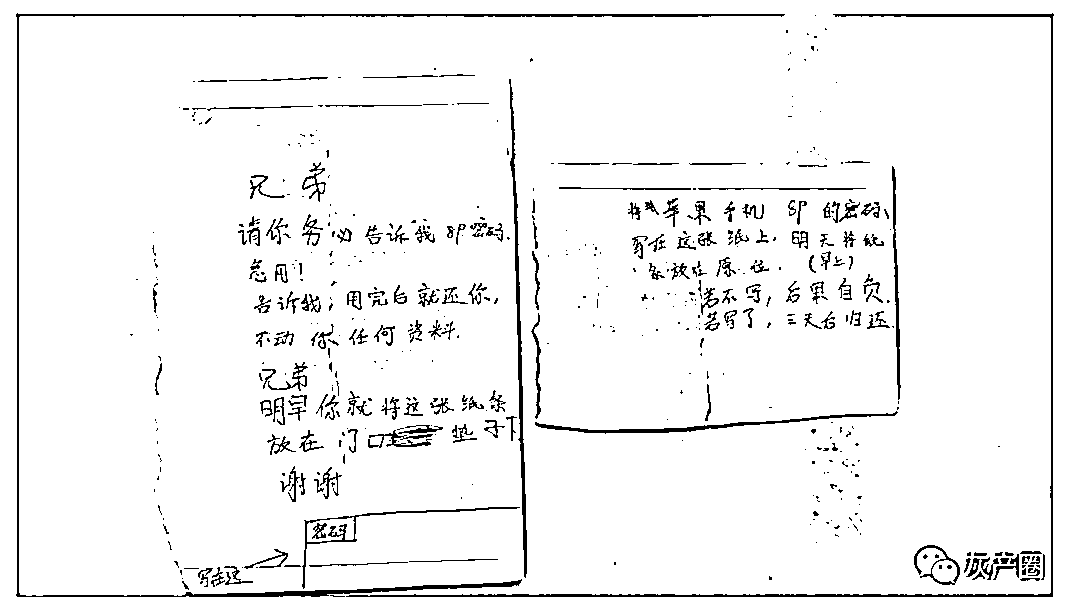 兄弟
请你务必告诉我8P密码.
急用!
告诉我,用完白就还你,
不动你任何资料.
兄弟
明早你就将这张纸条
放在门口垫子下
谢谢
密码
写在这
苹果手机 8P 的密码、
写在这张纸上.明天将纸
条放在原位.(早上)
若不写,后果自负.
若写了,三天后归还.
灰产圈